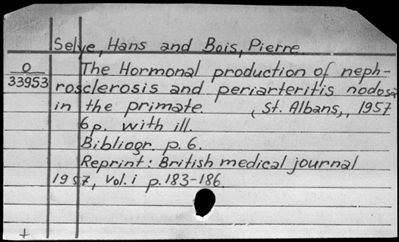 Selye, Hans and Bois, Pierre
O The Hormonal production of neph-
33953 rosclerosis and periarteritis nodosa
in the primate. (St. Albans,, 1957
6p. with ill.
Bibliogr. p. 6.
Reprint: British medical journal
1957, vol. i p. 183-186.